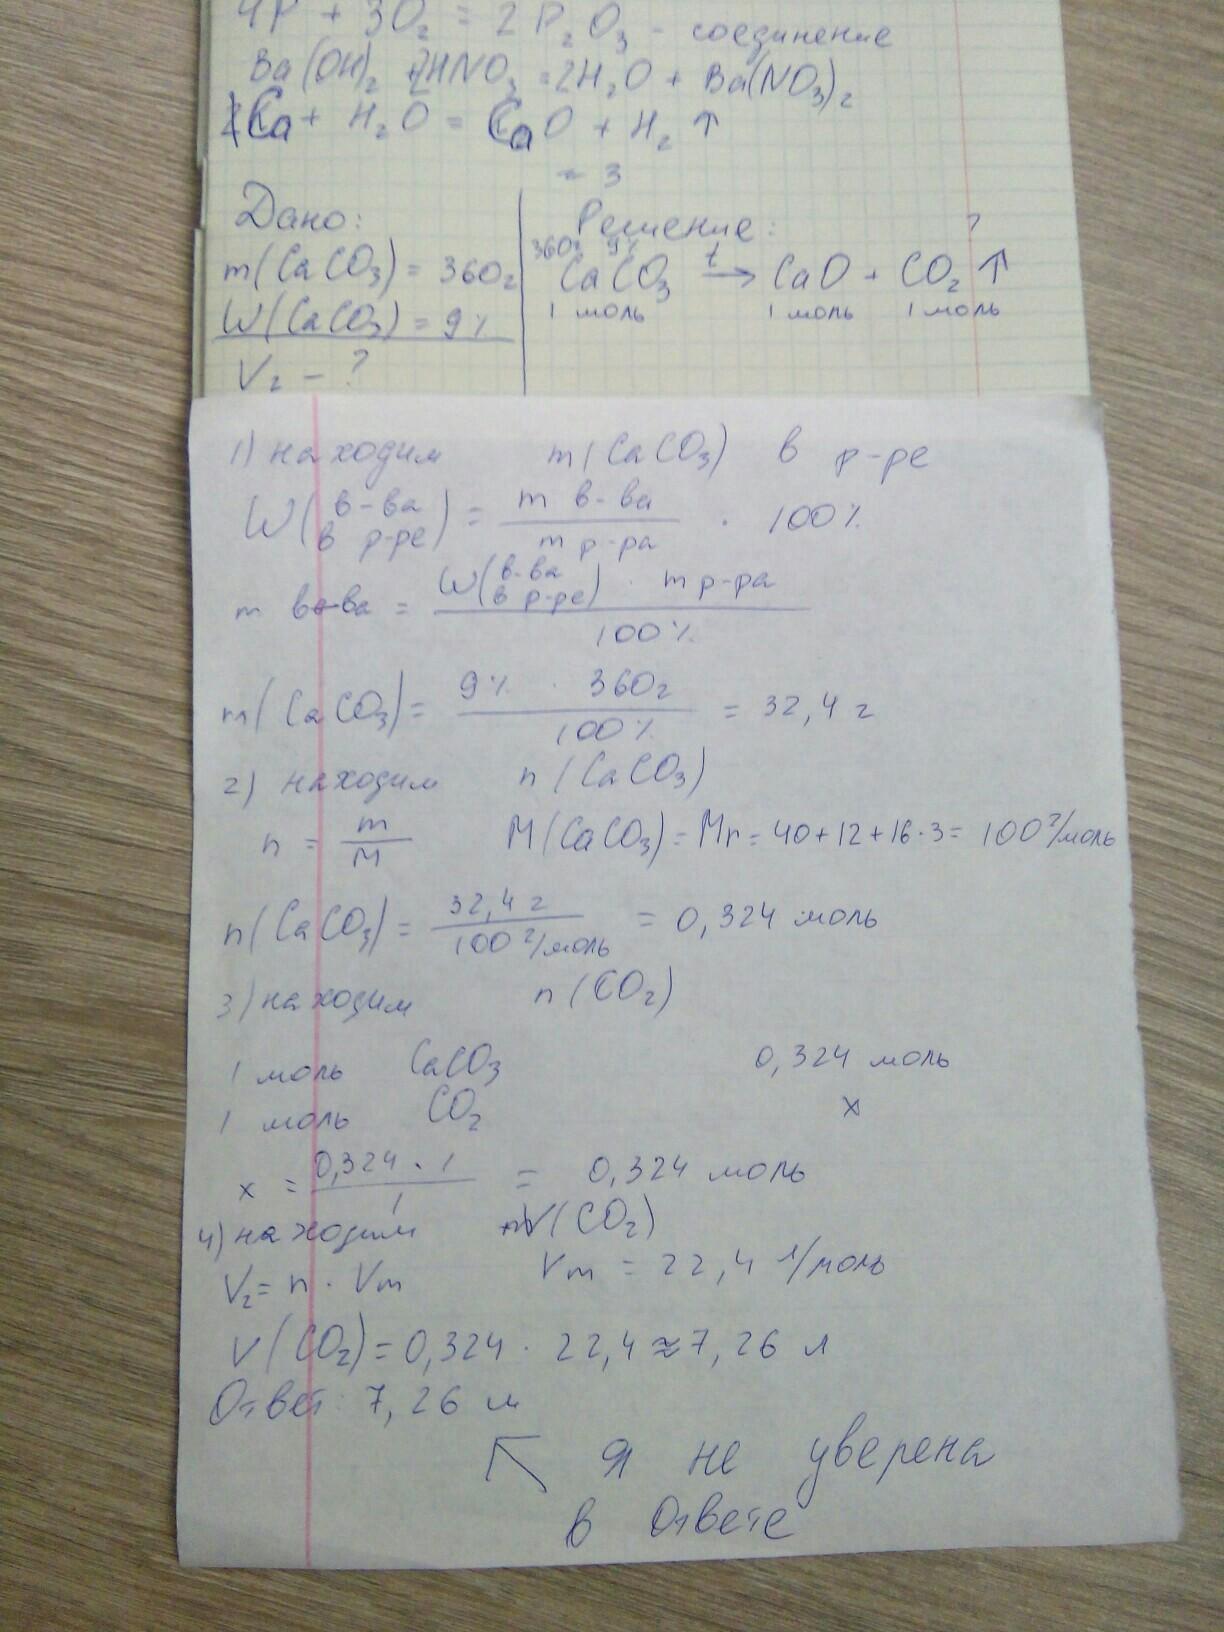 4P + 3O₂ = 2 P₂O₃ - соединение
Ba(OH)₂ + 2HNO₃ = 2H₂O + Ba(NO₃)₂
Ca + H₂O = CaO + H₂ ↑
~ 3
Дано:
m(CaCO₃) = 360г
W(CaCO₃) = 9%
Vг - ?
Решение: ?
360г 9%
CaCO₃ t→ CaO + CO₂ ↑
1 моль 1 моль 1 моль
1) находим m(CaCO₃) в р-ре
W(в-ва в р-ре) = m в-ва / m р-ра · 100%
m в-ва = W(в-ва в р-ре) · m р-ра / 100%
m(CaCO₃) = 9% · 360г / 100% = 32,4 г
2) находим n(CaCO₃)
n = m / M M(CaCO₃) = Mr = 40+12+16·3 = 100 г/моль
n(CaCO₃) = 32,4 г / 100 г/моль = 0,324 моль
3) находим n(CO₂)
1 моль CaCO₃ 0,324 моль
1 моль CO₂ x
x = 0,324 · 1 / 1 = 0,324 моль
4) находим V(CO₂)
Vг = n · Vm Vm = 22,4 л/моль
V(CO₂) = 0,324 · 22,4 ≈ 7,26 л
Ответ: 7,26 л
↖ я не уверена
в ответе